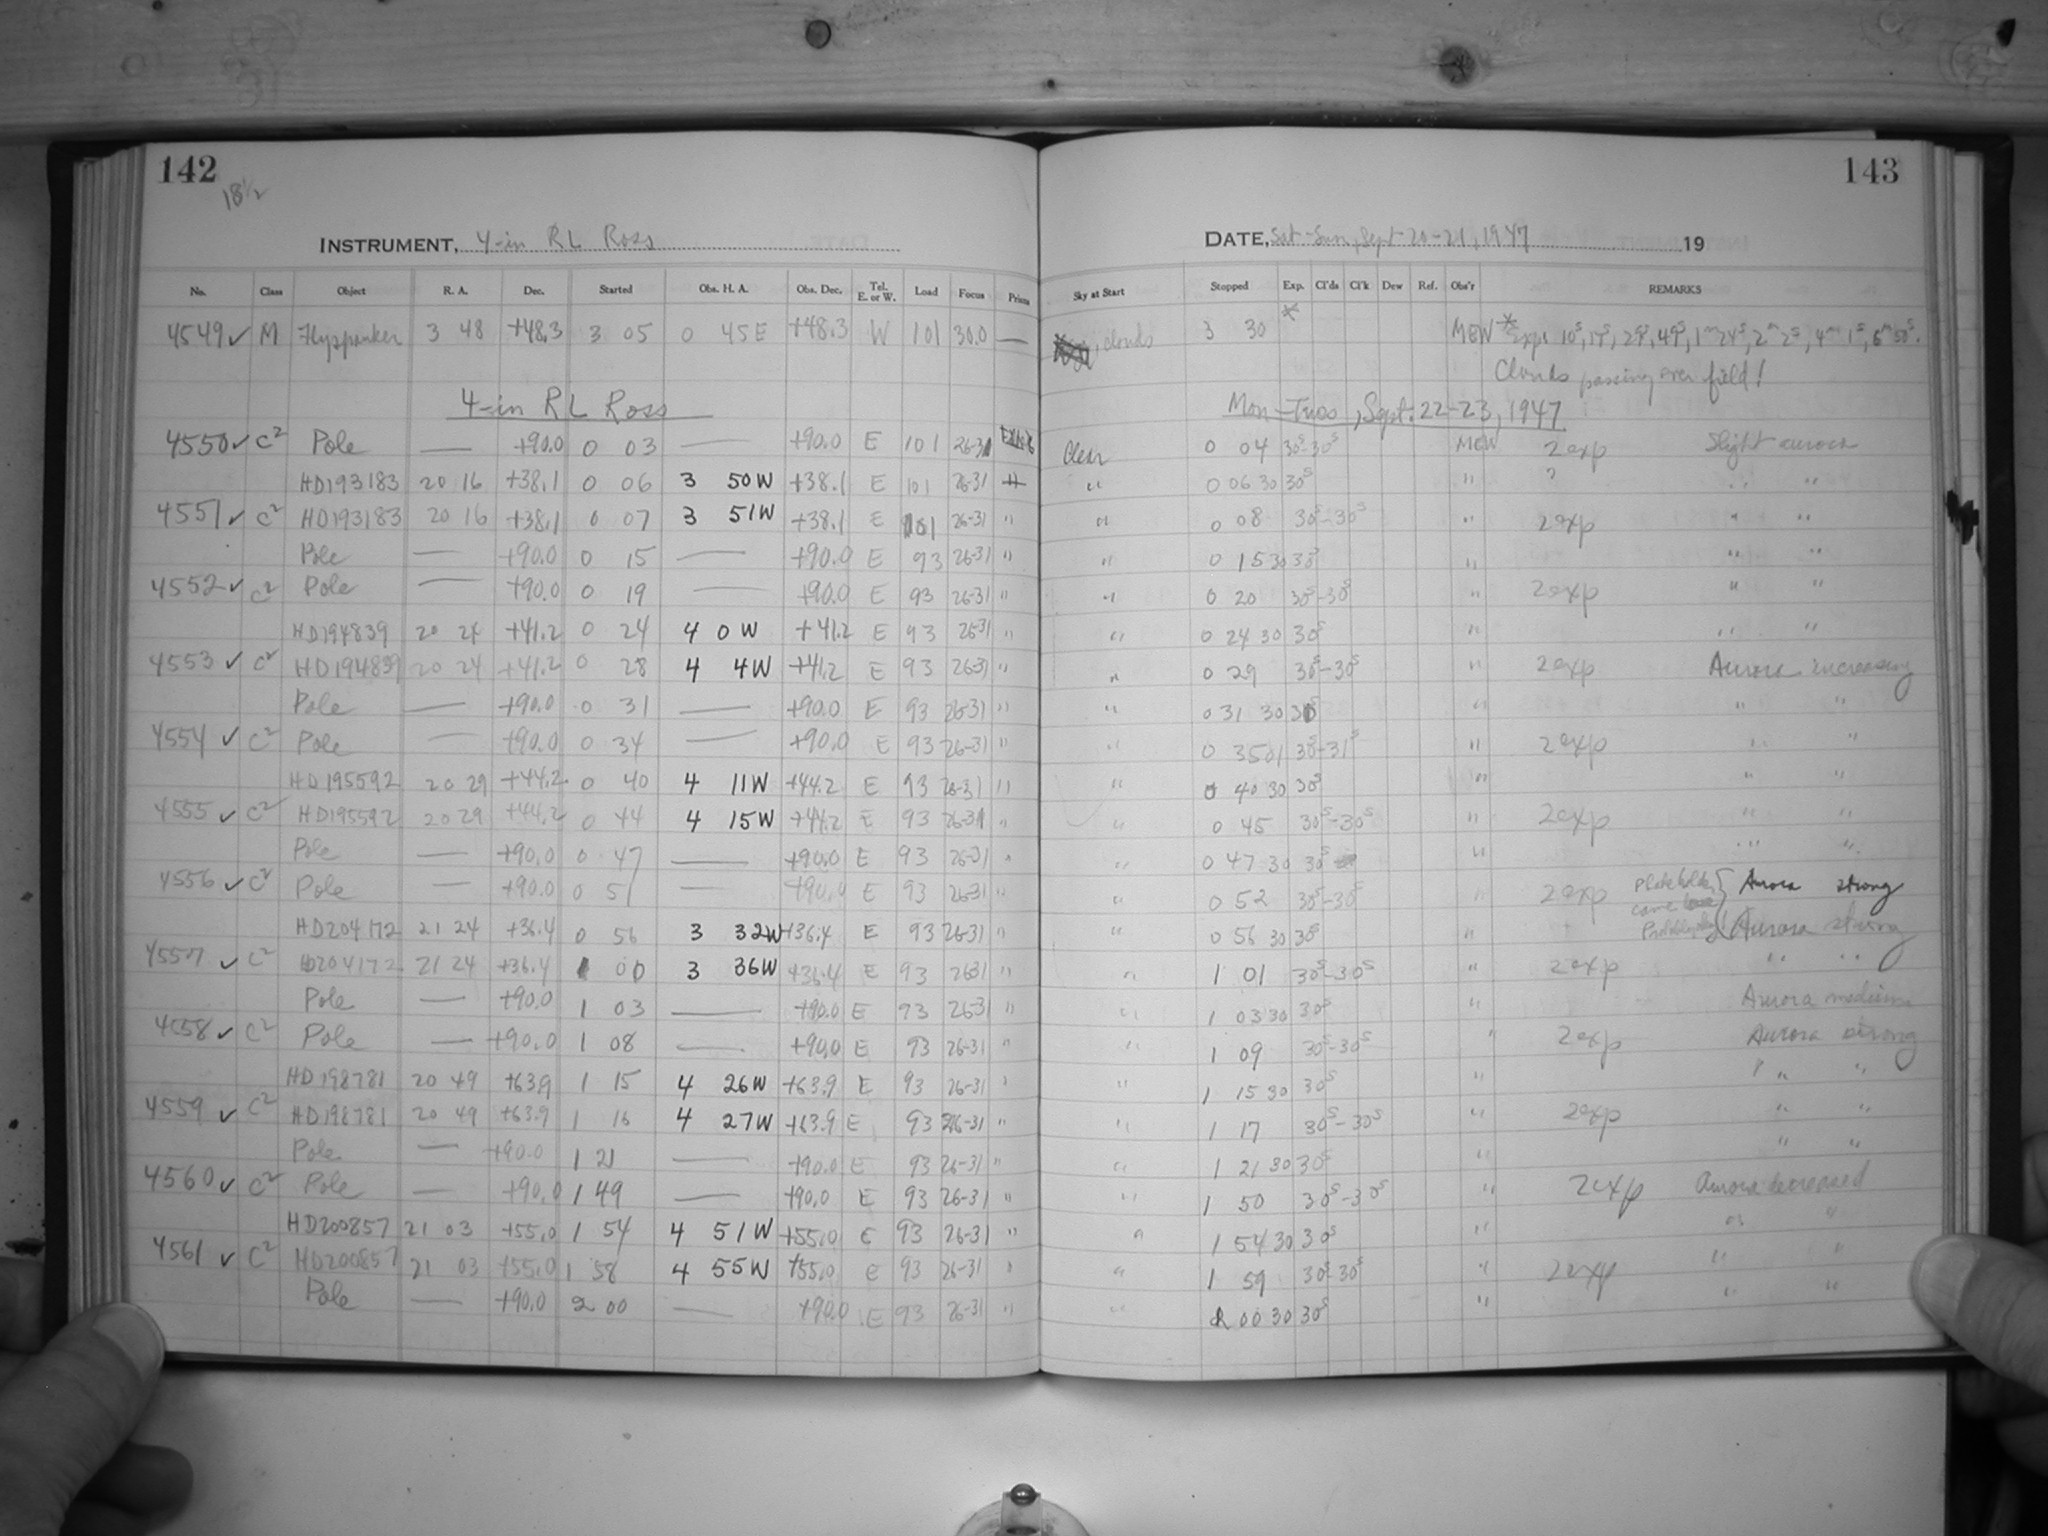 142
18 1/2
INSTRUMENT, 4-in RL Ross
No. Class Object R. A. Dec. Started Obs. H. A. Obs. Dec. Tel. E. or W. Load Focus Prism
4549 ✓ M Flyspanker 3 48 +48.3 3 05 0 45E +48.3 W 101 30.0 —
4-in RL Ross
4550 ✓ C2 Pole — +90.0 0 03 — +90.0 E 101 26-31
HD193183 20 16 +38.1 0 06 3 50W +38.1 E 101 26-31
4551 ✓ C2 HD193183 20 16 +38.1 0 07 3 51W +38.1 E 101 26-31 "
Pole — +90.0 0 15 — +90.0 E 93 26-31 "
4552 ✓ C2 Pole — +90.0 0 19 — +90.0 E 93 26-31 "
HD194839 20 24 +41.2 0 24 4 0W +41.2 E 93 26-31 "
4553 ✓ C2 HD194839 20 24 +41.2 0 28 4 4W +41.2 E 93 26-31 "
Pole — +90.0 0 31 — +90.0 E 93 26-31 "
4554 ✓ C2 Pole — +90.0 0 34 — +90.0 E 93 26-31 "
HD195592 20 29 +44.2 0 40 4 11W +44.2 E 93 26-31 "
4555 ✓ C2 HD195592 20 29 +44.2 0 44 4 15W +44.2 E 93 26-31 "
Pole — +90.0 0 47 — +90.0 E 93 26-31 "
4556 ✓ C2 Pole — +90.0 0 51 — +90.0 E 93 26-31 "
HD204172 21 24 +36.4 0 56 3 32W +36.4 E 93 26-31 "
4557 ✓ C2 HD204172 21 24 +36.4 1 00 3 36W +36.4 E 93 26-31 "
Pole — +90.0 1 03 — +90.0 E 93 26-31 "
4558 ✓ C2 Pole — +90.0 1 08 — +90.0 E 93 26-31 "
HD198781 20 49 +63.9 1 15 4 26W +63.9 E 93 26-31 "
4559 ✓ C2 HD198781 20 49 +63.9 1 16 4 27W +63.9 E 93 26-31 "
Pole — +90.0 1 21 — +90.0 E 93 26-31 "
4560 ✓ C2 Pole — +90.0 1 49 — +90.0 E 93 26-31 "
HD200857 21 03 +55.0 1 54 4 51W +55.0 E 93 26-31 "
4561 ✓ C2 HD200857 21 03 +55.0 1 58 4 55W +55.0 E 93 26-31 "
Pole — +90.0 2 00 — +90.0 E 93 26-31 "
143
DATE, Sat-Sun, Sept 20-21, 1947 19
Sky at Start Stopped Exp. Cl'ds Cl'k Dew Ref. Obs'r REMARKS
, clouds 3 30 * MEW * Exps 10s, 17s, 29s, 49s, 1m 24s, 2m 2s, 4m 1s, 6m 50s.
Clouds passing over field!
Mon-Tues, Sept. 22-23, 1947
Clear 0 04 30s-30s MEW 2exp Slight aurora
" 0 06 30 30s " " " "
" 0 08 30s-30s " 2exp " "
" 0 15 30 30s " " "
" 0 20 30s-30s " 2exp " "
" 0 24 30 30s " " "
" 0 29 30s-30s " 2exp Aurora increasing
" 0 31 30 30s " " "
" 0 35 01 30s-31s " 2exp " "
" 0 40 30 30s " " "
" 0 45 30s-30s " 2exp " "
" 0 47 30 30s " " "
" 0 52 30s-30s " 2exp Plateholder came { Aurora strong
" 0 56 30 30s " Aurora strong
" 1 01 30s-30s " 2exp " "
" 1 03 30 30s " Aurora medium
" 1 09 30s-30s " 2exp Aurora strong
" 1 15 30 30s " " "
" 1 17 30s-30s " 2exp " "
" 1 21 30 30s " " "
" 1 50 30s-30s " 2exp Aurora decreased
" 1 54 30 30s " " "
" 1 59 30s-30s " 2exp " "
" 2 00 30 30s " " "